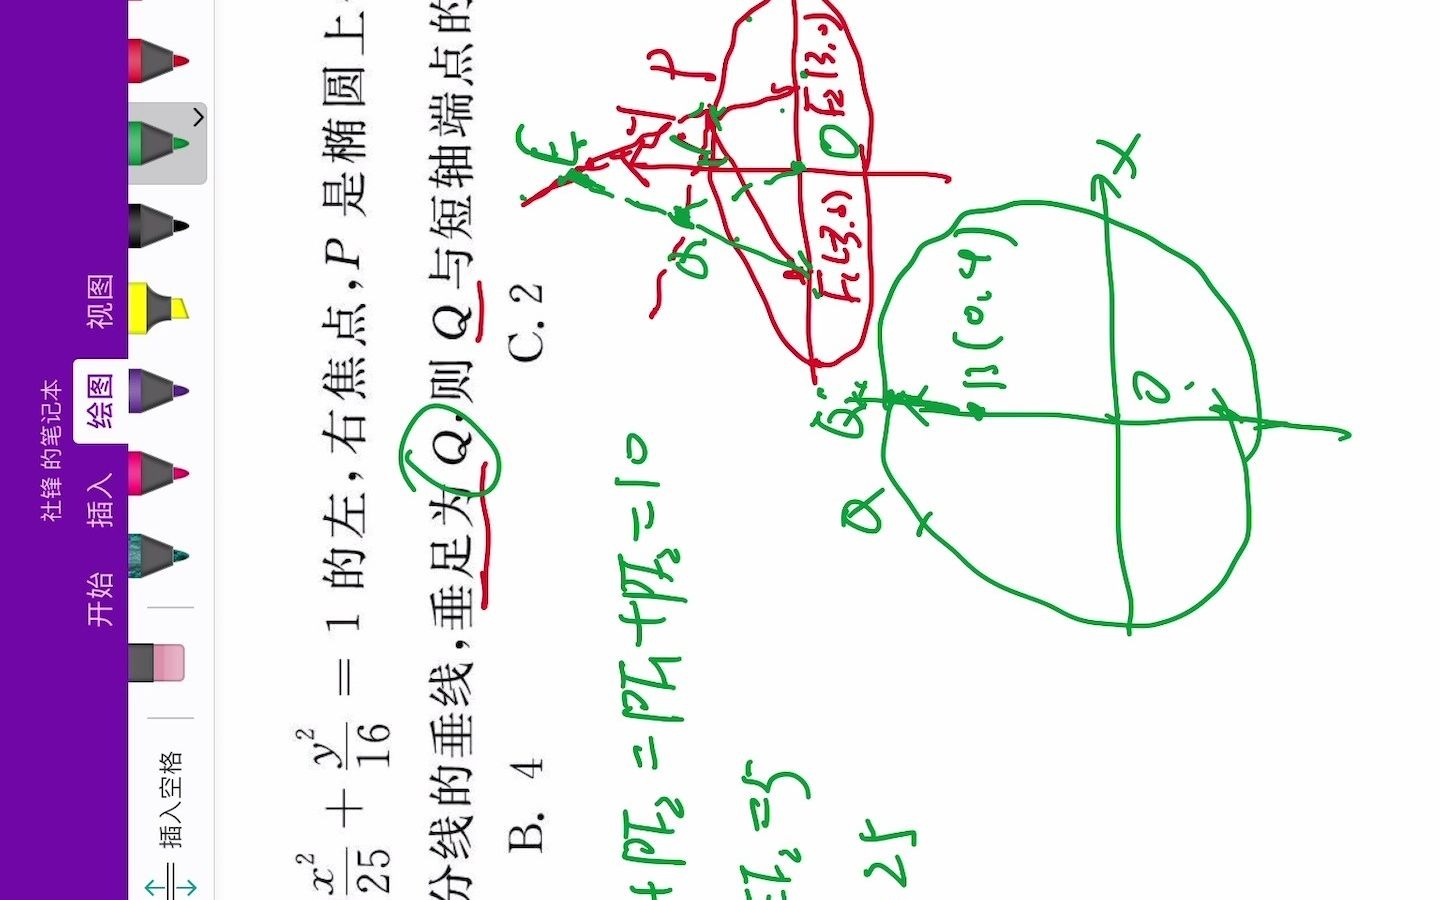 社锋 的笔记本
开始 插入 绘图 视图
插入空格
x²/25 + y²/16 = 1 的左,右焦点,P 是椭圆上
分线的垂线,垂足为 Q,则 Q 与短轴端点的
B. 4 C. 2
+PF₂ = PF₁+PF₂ = 10
F₂ = 5
25
E
P
Q
F₁(-3.0)
O
F₂(3.0)
Q
Q
B(0,4)
O
X